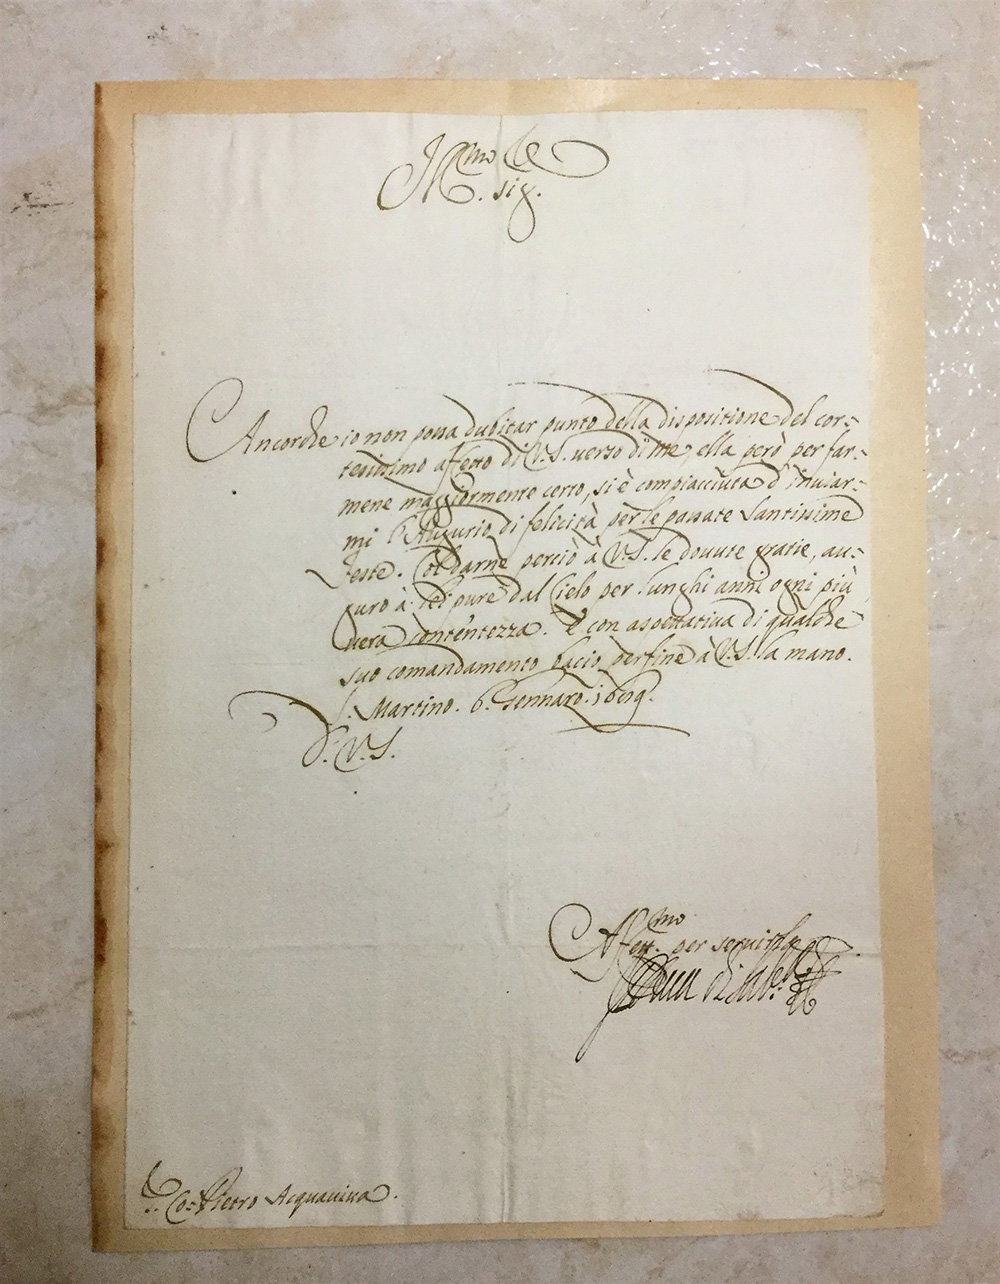 Ill.mo
sig.
Ancorche io non possa dubitar punto della dispositione del cor-
tesissimo affetto di V.S. verso di me, ella però per far-
mene maggiormente certo, si è compiacciuta d'inuiar-
mi l'Augurio di felicità per le passate Santissime
feste. Col darne perciò à V.S. le douute gratie, au-
guro à lei pure dal Cielo per lunghi anni ogni più
uera contentezza. E con aspettatiua di qualche
suo comandamento bacio perfine à V.S. la mano.
S. Martino. 6. Gennaro. 1609.
D. V. S.
Affett.mo per seruirla
Co: Pietro Acquauiua.